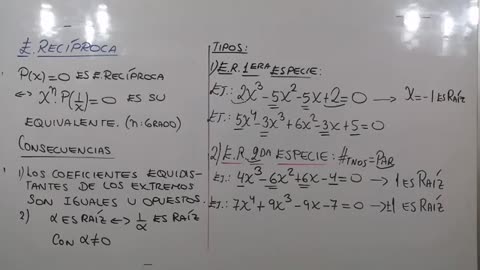 E. RECÍPROCA
P(x)=0 ES E. RECÍPROCA
↔ xⁿ·P(1/x)=0 ES SU
EQUIVALENTE. (n:GRADO)
CONSECUENCIAS
1) LOS COEFICIENTES EQUIDIS-
TANTES DE LOS EXTREMOS
SON IGUALES U OPUESTOS.
2) α ES RAÍZ ↔ 1/α ES RAÍZ
CON α≠0
TIPOS:
1) E.R. 1ERA ESPECIE:
EJ.: 2x³-5x²-5x+2=0 → x=-1 ES RAÍZ
EJ.: 5x⁴-3x³+6x²-3x+5=0
2) E.R. 2DA ESPECIE: #TNOS=PAR
EJ.: 4x³-6x²+6x-4=0 → 1 ES RAÍZ
EJ.: 7x⁴+9x³-9x-7=0 → ±1 ES RAÍZ